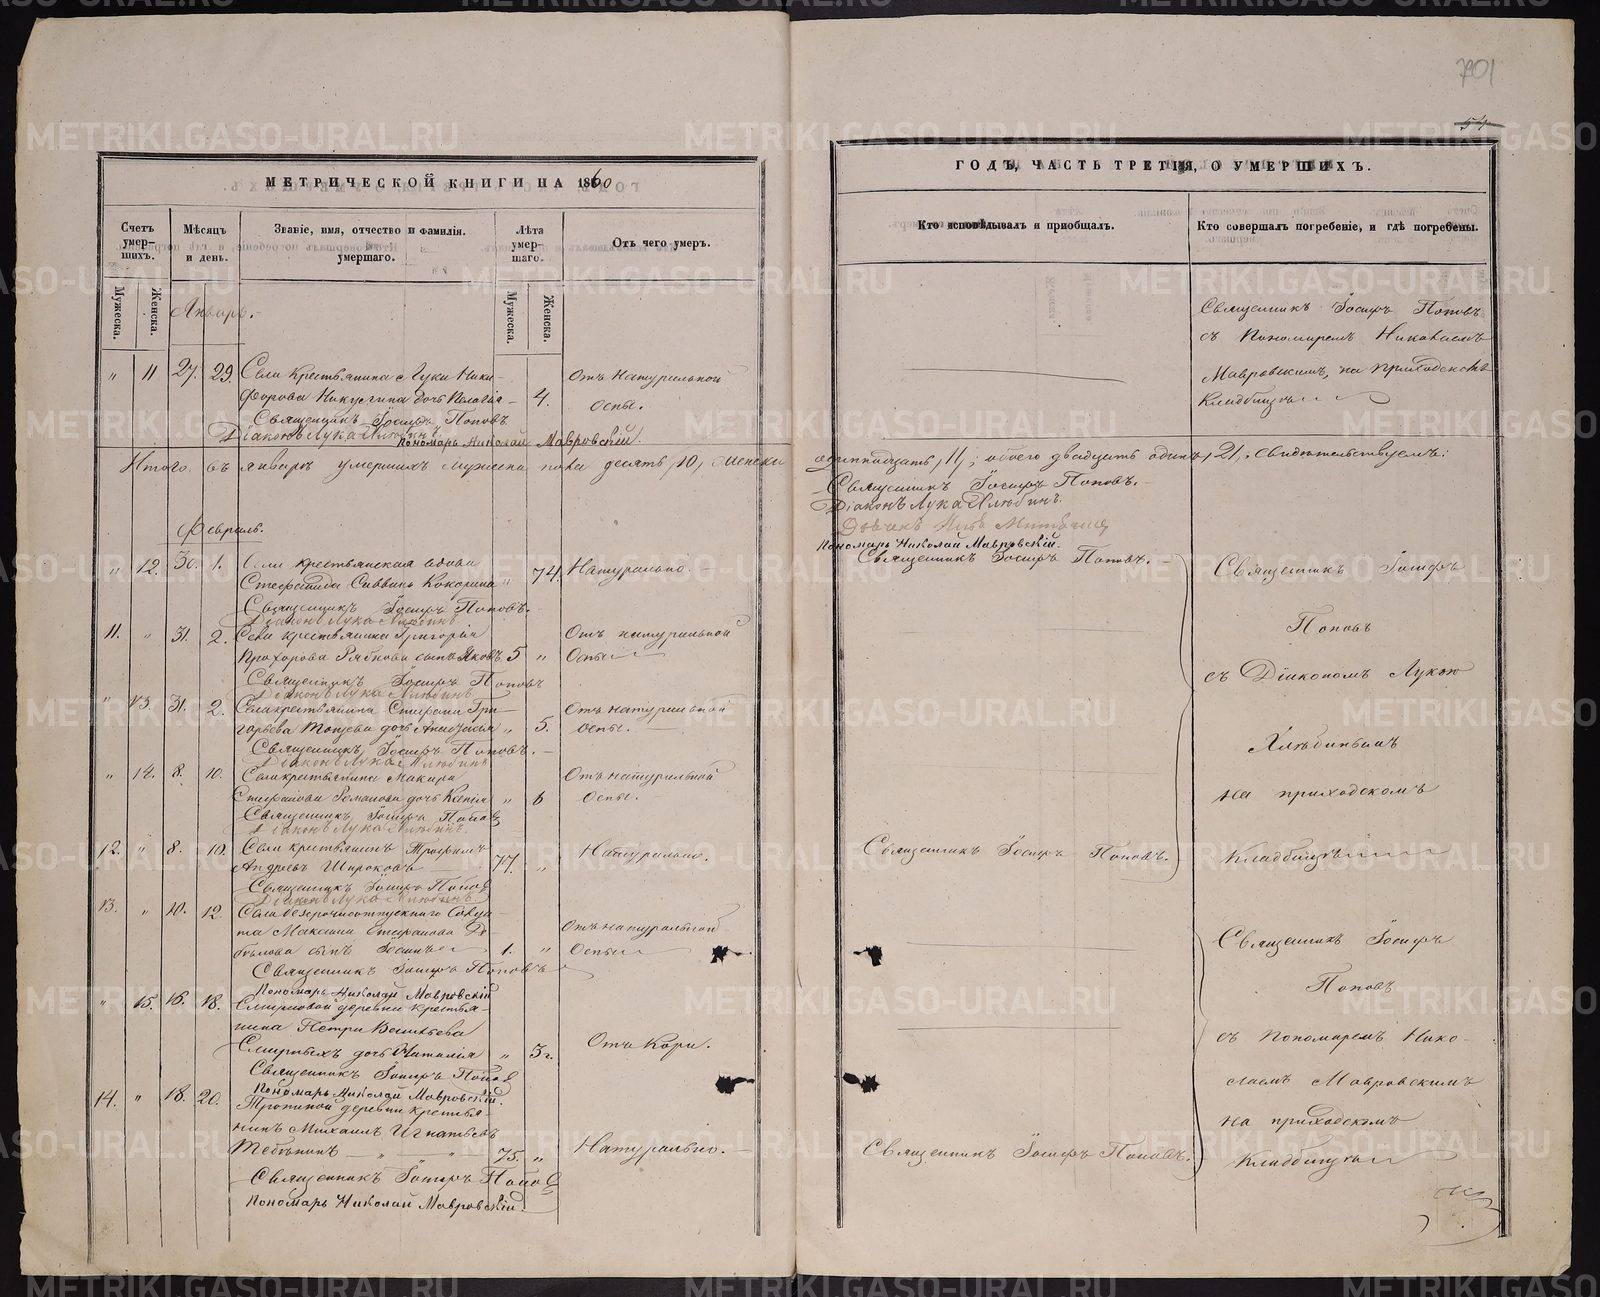 701
54
МЕТРИЧЕСКОЙ КНИГИ НА 1860
Счетъ умер-шихъ.
Мѣсяцъ и день.
Званіе, имя, отчество и фамилія. умершаго.
Лѣта умер-шаго.
Отъ чего умеръ.
Мужеска.
Женска.
Мужеска.
Женска.
Январь.
" 11 27. 29. Села крестьянина Луки Ники-
форова дочь Пелагія 4. Отъ Натуральной Оспы.
Священникъ Іосифъ Поповъ
Діаконъ Лука Хлѣбинъ
Пономарь Николай Мавровскій.
Итого въ Январѣ умершихъ мужеска пола десять, 10, женска
Февраль.
" 12. 30. 1. Села крестьянская вдова
Кокорина " 74. Натурально.
Священникъ Іосифъ Поповъ.
Діаконъ Лука Хлѣбинъ
11. " 31. 2. Села крестьянина Григорія
Прохорова сынъ Яковъ 5 " Отъ натуральной Оспы
Священникъ Іосифъ Поповъ
Діаконъ Лука Хлѣбинъ
" 13. 31. 2. Села крестьянина Стефана Гри-
горьева дочь " 5. Отъ натуральной Оспы.
Священникъ Іосифъ Поповъ.
Діаконъ Лука Хлѣбинъ
" 14. 8. 10. Села крестьянина Макара
Стефанова Романова дочь Ксенія " 6 Отъ натуральной Оспы.
Священникъ Іосифъ Поповъ
Діаконъ Лука Хлѣбинъ.
12. " 8. 10. Села крестьянинъ Трофимъ
Андреевъ Широковъ 77. " Натурально.
Священникъ Іосифъ Поповъ
Діаконъ Лука Хлѣбинъ
13. " 10. 12. Села безсрочноотпускнаго Солда-
та Максима Стефанова 
сынъ 1. " Отъ натуральной Оспы
Священникъ Іосифъ Поповъ
Пономарь Николай Мавровскій
" 15. 16. 18. Смирновой деревни крестья-
нина Петра Васильева
Смирныхъ дочь Наталія " 3 г. Отъ Кори.
Священникъ Іосифъ Поповъ
Пономарь Николай Мавровскій.
14. " 18. 20. Тропиной деревни крестья-
нинъ Михаилъ Игнатьевъ
75. " Натурально.
Священникъ Іосифъ Поповъ
Пономарь Николай Мавровскій.
ГОДЪ, ЧАСТЬ ТРЕТІЯ, О УМЕРШИХЪ.
Кто исповѣдывалъ и пріобщалъ.
Кто совершалъ погребеніе, и гдѣ погребены.
Священникъ Іосифъ Поповъ
съ Пономаремъ Николаемъ
Мавровскимъ, на приходскомъ
Кладбищѣ
одиннадцать, 11,; обоего двадцать одинъ, 21,. Свидѣтельствуемъ:
Священникъ Іосифъ Поповъ.
Діаконъ Лука Хлѣбинъ.
Пономарь Николай Мавровскій.
Священникъ Іосифъ Поповъ.
Священникъ Іосифъ
Поповъ
съ Діакономъ Лукою
Хлѣбинымъ
на приходскомъ
Священникъ Іосифъ Поповъ.
Кладбищѣ
Священникъ Іосифъ
Поповъ
съ Пономаремъ Нико-
лаемъ Мавровскимъ
на приходскомъ
Священникъ Іосифъ Поповъ.
Кладбищѣ
METRIKI.GASO-URAL.RU